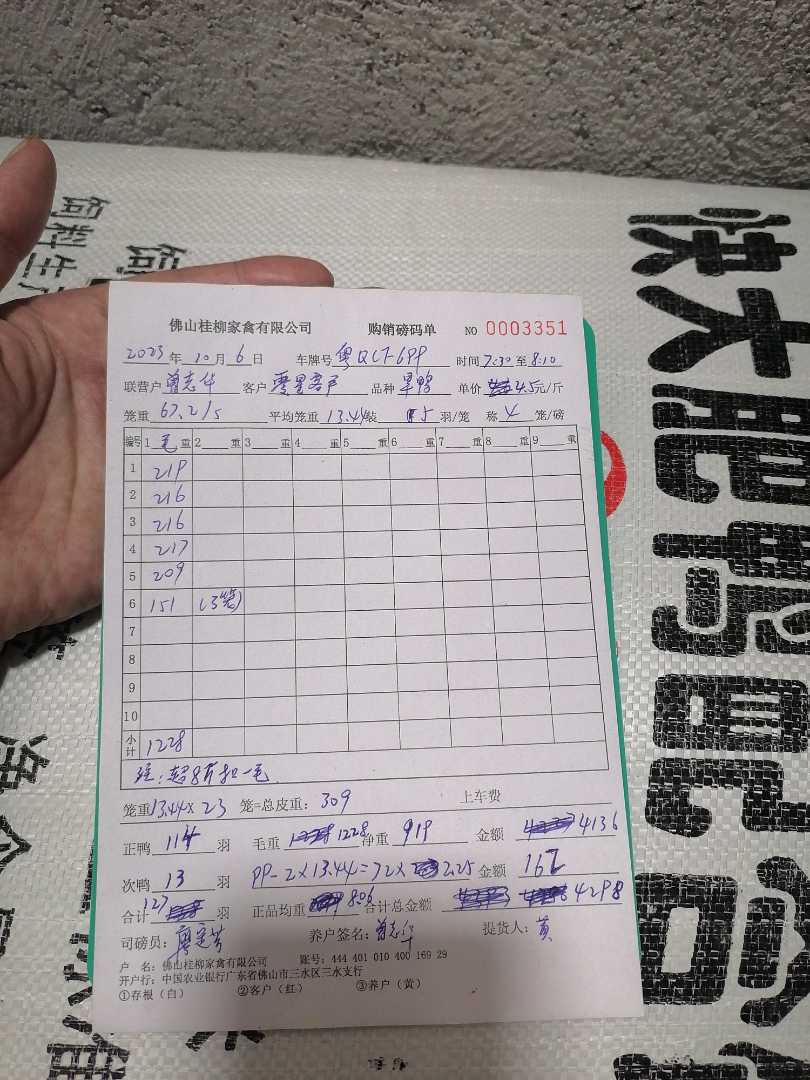 佛山桂柳家禽有限公司 购销磅码单 NO 0003351
2023年 10月 6日 车牌号 粤QCT-6PP 时间7:30至8:10
联营户 曾志华 客户 品种 单价 4.5元/斤
笼重 67.2/5 平均笼重 13.44 装 5羽/笼 称 4 笼/磅
编号 1 毛 重 2 重 3 重 4 重 5 重 6 重 7 重 8 重 9 重
1 219
2 216
3 216
4 217
5 209
6 151 (3笼)
7
8
9
10
小计 1228
注:超8斤扣一毛
笼重13.44×23 笼=总皮重:309 上车费
正鸭 114 羽 毛重 1228 净重 919 金额 4136
次鸭 13 羽 99-2×13.44=72× 2.25 金额 162
合计 127 羽 正品均重 8.06 合计总金额 4298
司磅员: 养户签名:曾志华 提货人:黄
户 名:佛山桂柳家禽有限公司 账号:444 401 010 400 169 29
开户行:中国农业银行广东省佛山市三水区三水支行
①存根(白) ②客户(红) ③养户(黄)
快大肥鸭配合
饲料生
饲
净
准